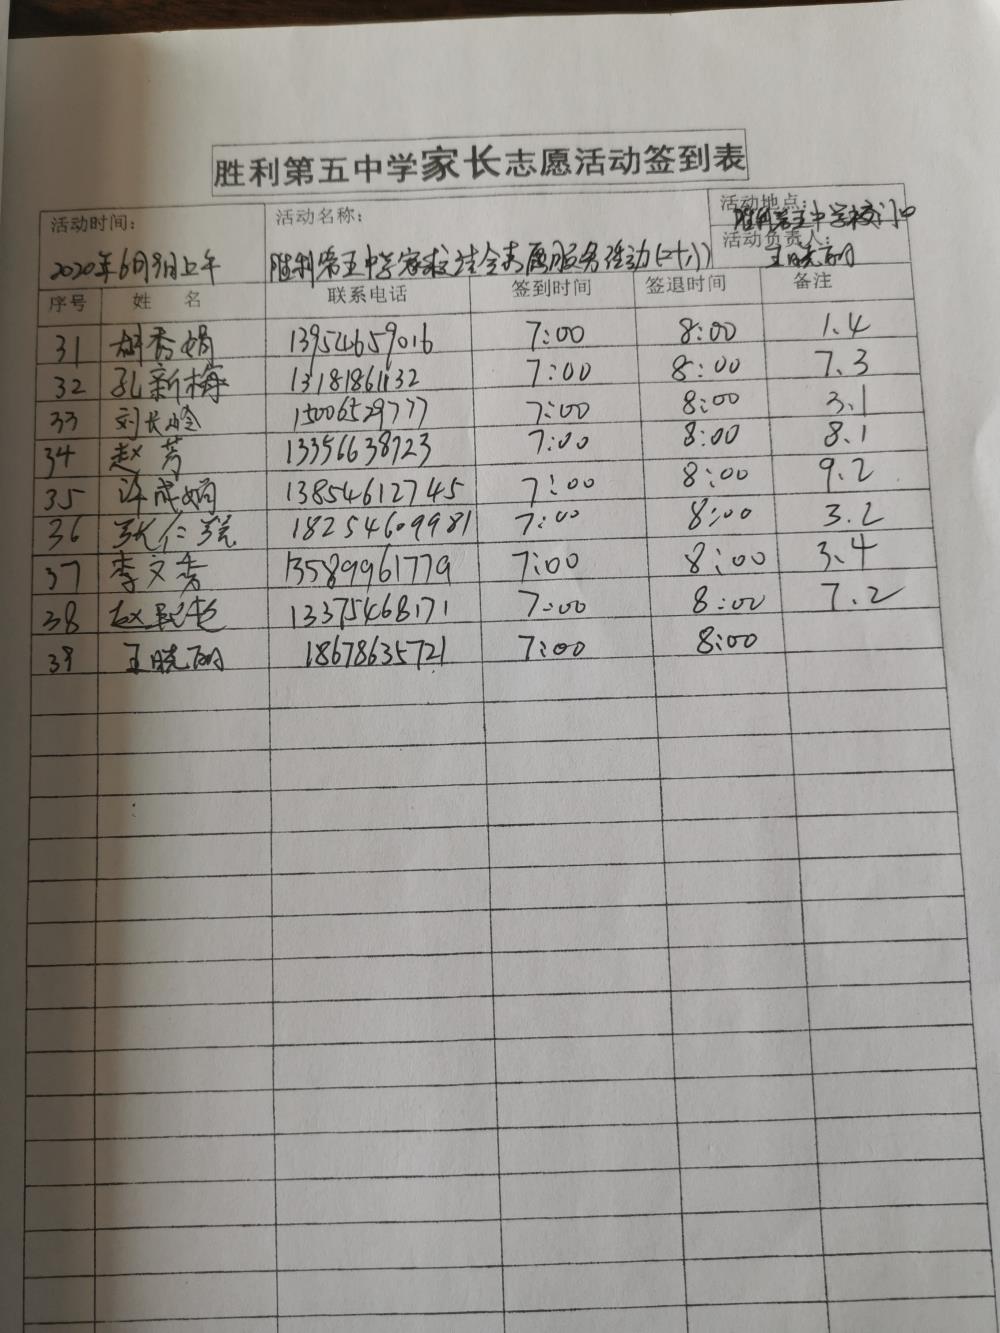 胜利第五中学家长志愿活动签到表
活动时间: 活动名称: 活动地点: 胜利第五中学校门口
2020年6月9日上午 胜利第五中学家校社会志愿服务活动(二十八) 活动负责人: 王晓丽
序号 姓 名 联系电话 签到时间 签退时间 备注
31 胡秀娟 13954659016 7:00 8:00 1.4
32 孔新梅 13181861132 7:00 8:00 7.3
33 刘长岭 15006529777 7:00 8:00 3.1
34 赵芳 13356638723 7:00 8:00 8.1
35 许成娟 13854612745 7:00 8:00 9.2
36 张仁 18254609981 7:00 8:00 3.2
37 李文秀 13589961779 7:00 8:00 3.4
38 赵 13375468171 7:00 8:00 7.2
39 王晓丽 18678635721 7:00 8:00